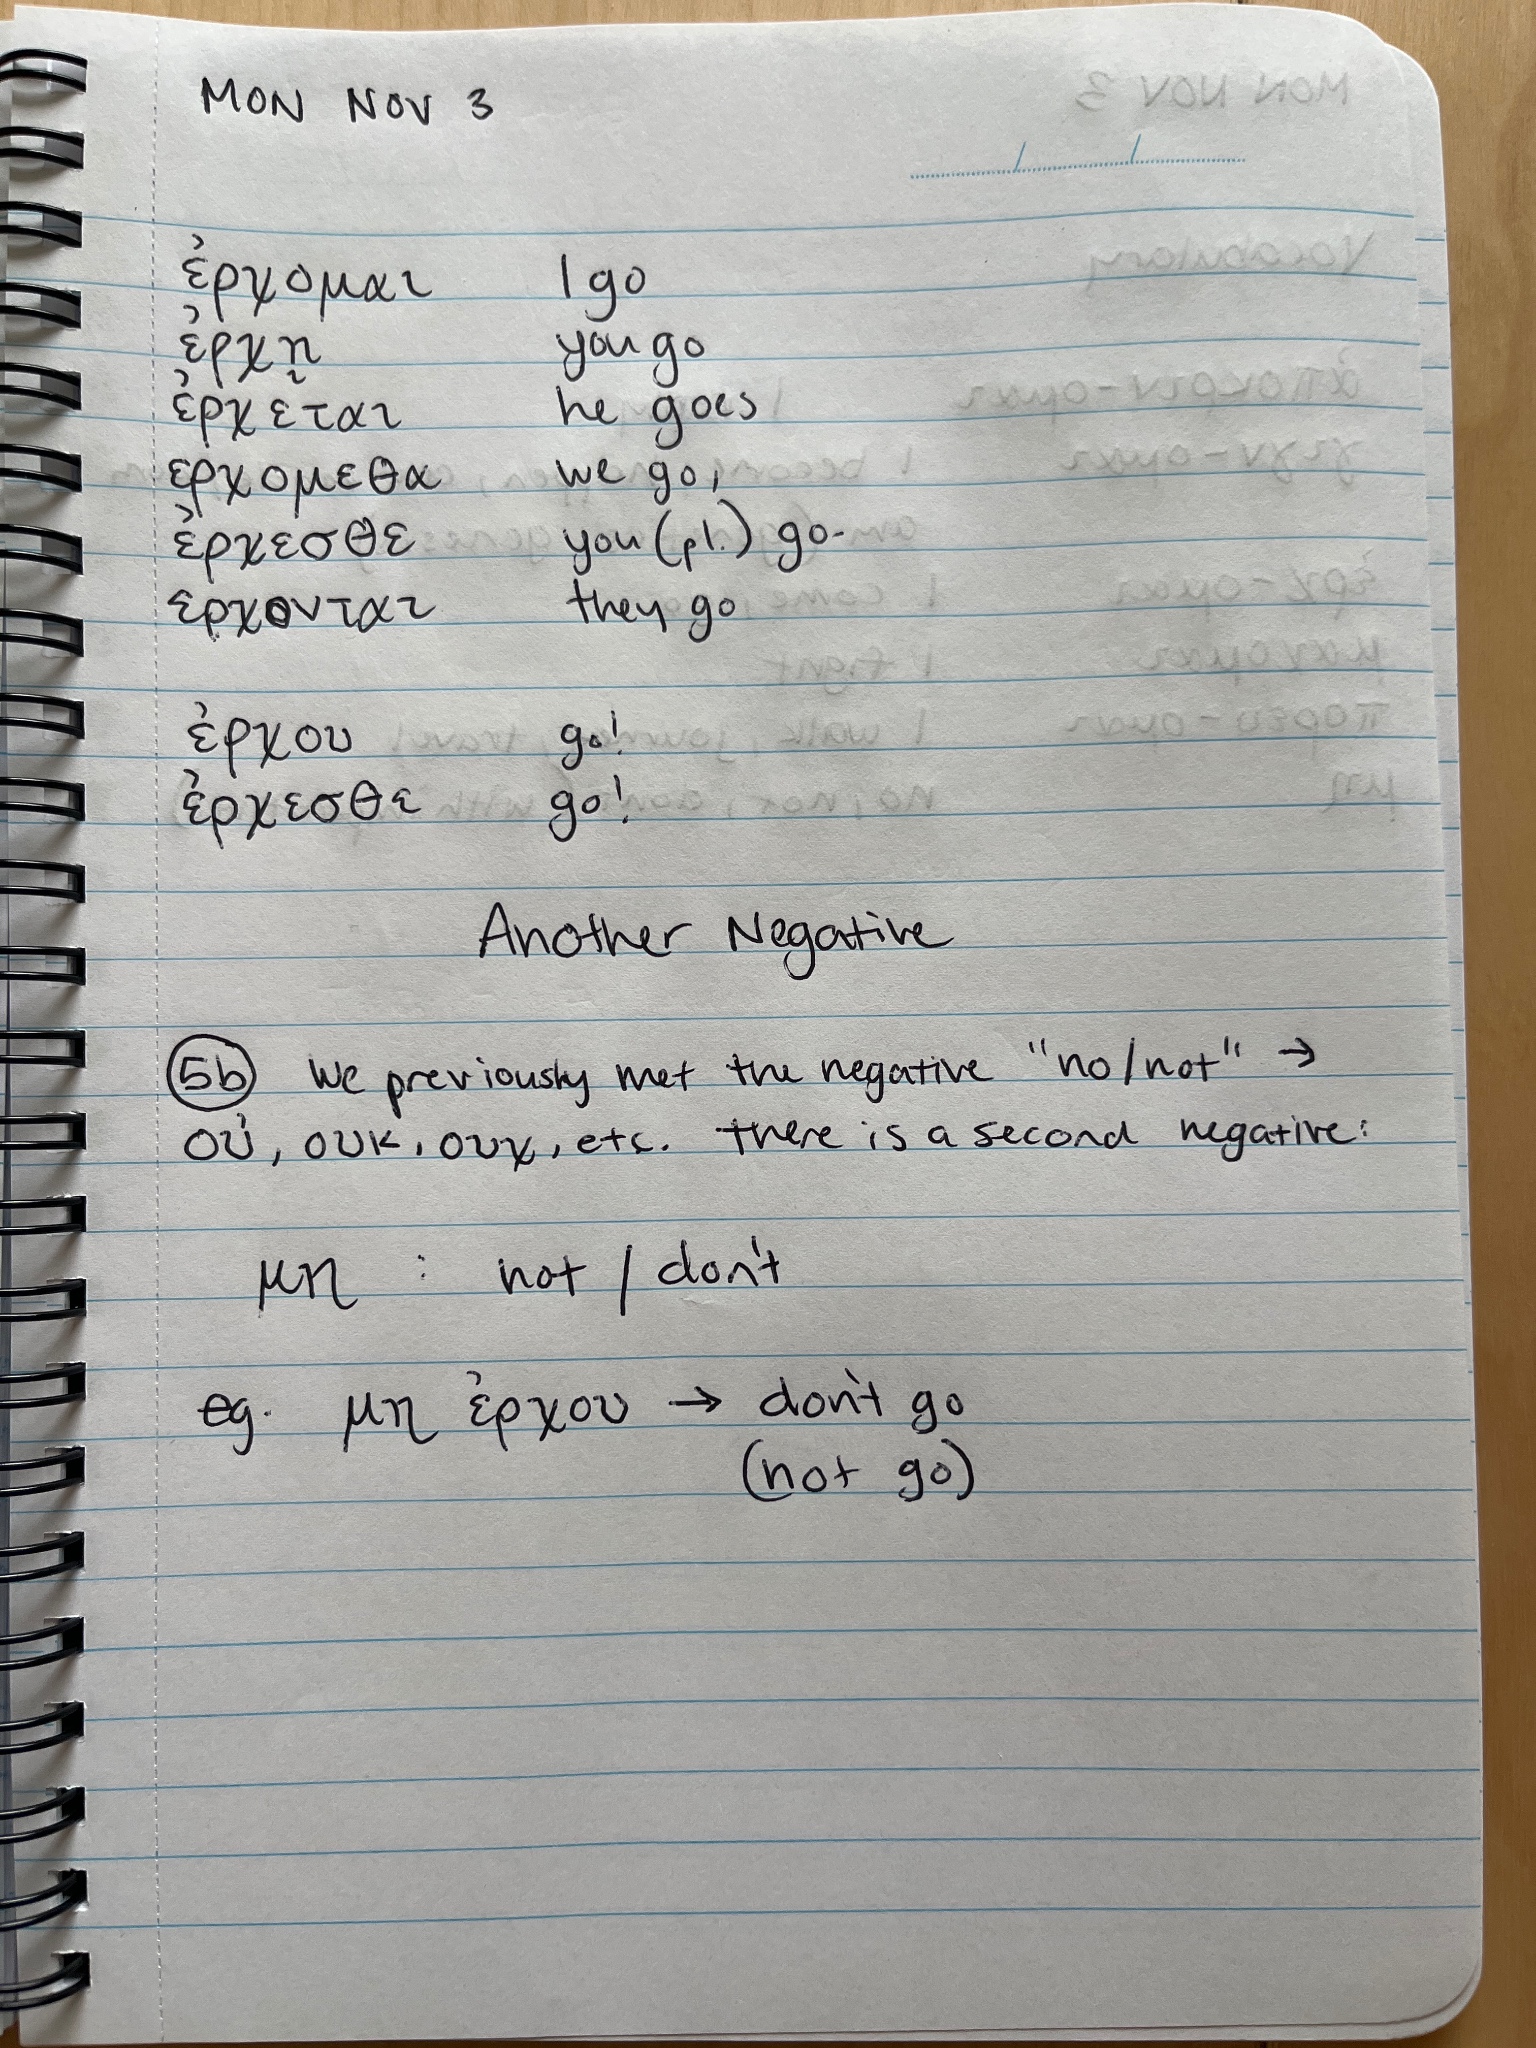 MON NOV 3
ἐρχομαι I go
ἐρχῃ you go
ἐρχεται he goes
ερχομεθα we go,
ἐρχεσθε you (pl.) go-
ερχονται they go
ἐρχου go!
ἐρχεσθε go!
Another Negative
5b We previously met the negative "no/not" →
οὐ, ουκ, ουχ, etc. There is a second negative:
μη : not / don't
eg. μη ἐρχου → don't go
(not go)